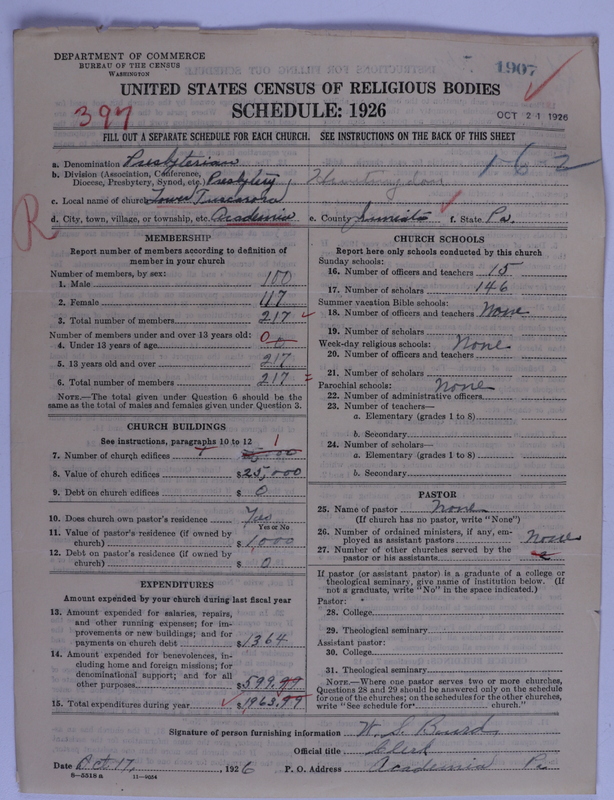 DEPARTMENT OF COMMERCE
BUREAU OF THE CENSUS
WASHINGTON
1907
UNITED STATES CENSUS OF RELIGIOUS BODIES
SCHEDULE: 1926
397
OCT 21 1926
FILL OUT A SEPARATE SCHEDULE FOR EACH CHURCH. SEE INSTRUCTIONS ON THE BACK OF THIS SHEET
162
a. Denomination Presbyterian
b. Division (Association, Conference, Diocese, Presbytery, Synod, etc.) Presbytery, Huntingdon
c. Local name of church Lower Tuscarora
R
d. City, town, village, or township, etc. Academia e. County Juniata f. State Pa.
MEMBERSHIP
Report number of members according to definition of member in your church
Number of members, by sex:
1. Male 100
2. Female 117
3. Total number of members 217
Number of members under and over 13 years old:
4. Under 13 years of age 0
5. 13 years old and over 217
6. Total number of members 217
NOTE.—The total given under Question 6 should be the same as the total of males and females given under Question 3.
CHURCH BUILDINGS
See instructions, paragraphs 10 to 12
7. Number of church edifices 1
8. Value of church edifices $25,000
9. Debt on church edifices $ 0
10. Does church own pastor's residence Yes
Yes or No
11. Value of pastor's residence (if owned by church) $1,000
12. Debt on pastor's residence (if owned by church) $ 0
EXPENDITURES
Amount expended by your church during last fiscal year
13. Amount expended for salaries, repairs, and other running expenses; for improvements or new buildings; and for payments on church debt $1364
14. Amount expended for benevolences, including home and foreign missions; for denominational support; and for all other purposes $599.99
15. Total expenditures during year $1963.99
CHURCH SCHOOLS
Report here only schools conducted by this church
Sunday schools:
16. Number of officers and teachers 15
17. Number of scholars 146
Summer vacation Bible schools:
18. Number of officers and teachers None
19. Number of scholars
Week-day religious schools: None
20. Number of officers and teachers
21. Number of scholars
Parochial schools: None
22. Number of administrative officers
23. Number of teachers—
a. Elementary (grades 1 to 8)
b. Secondary
24. Number of scholars—
a. Elementary (grades 1 to 8)
b. Secondary
PASTOR
25. Name of pastor None
(If church has no pastor, write "None")
26. Number of ordained ministers, if any, employed as assistant pastors None
27. Number of other churches served by the pastor or his assistants
If pastor (or assistant pastor) is a graduate of a college or theological seminary, give name of institution below. (If not a graduate, write "No" in the space indicated.)
Pastor:
28. College
29. Theological seminary
Assistant pastor:
30. College
31. Theological seminary
NOTE.—Where one pastor serves two or more churches, Questions 28 and 29 should be answered only on the schedule for one of the churches; on the schedules for the other churches, write "See schedule for church."
Signature of person furnishing information W. S.
Official title Clerk
Date Oct 17, 1926 P. O. Address Academia Pa
8—5518 a 11—9034